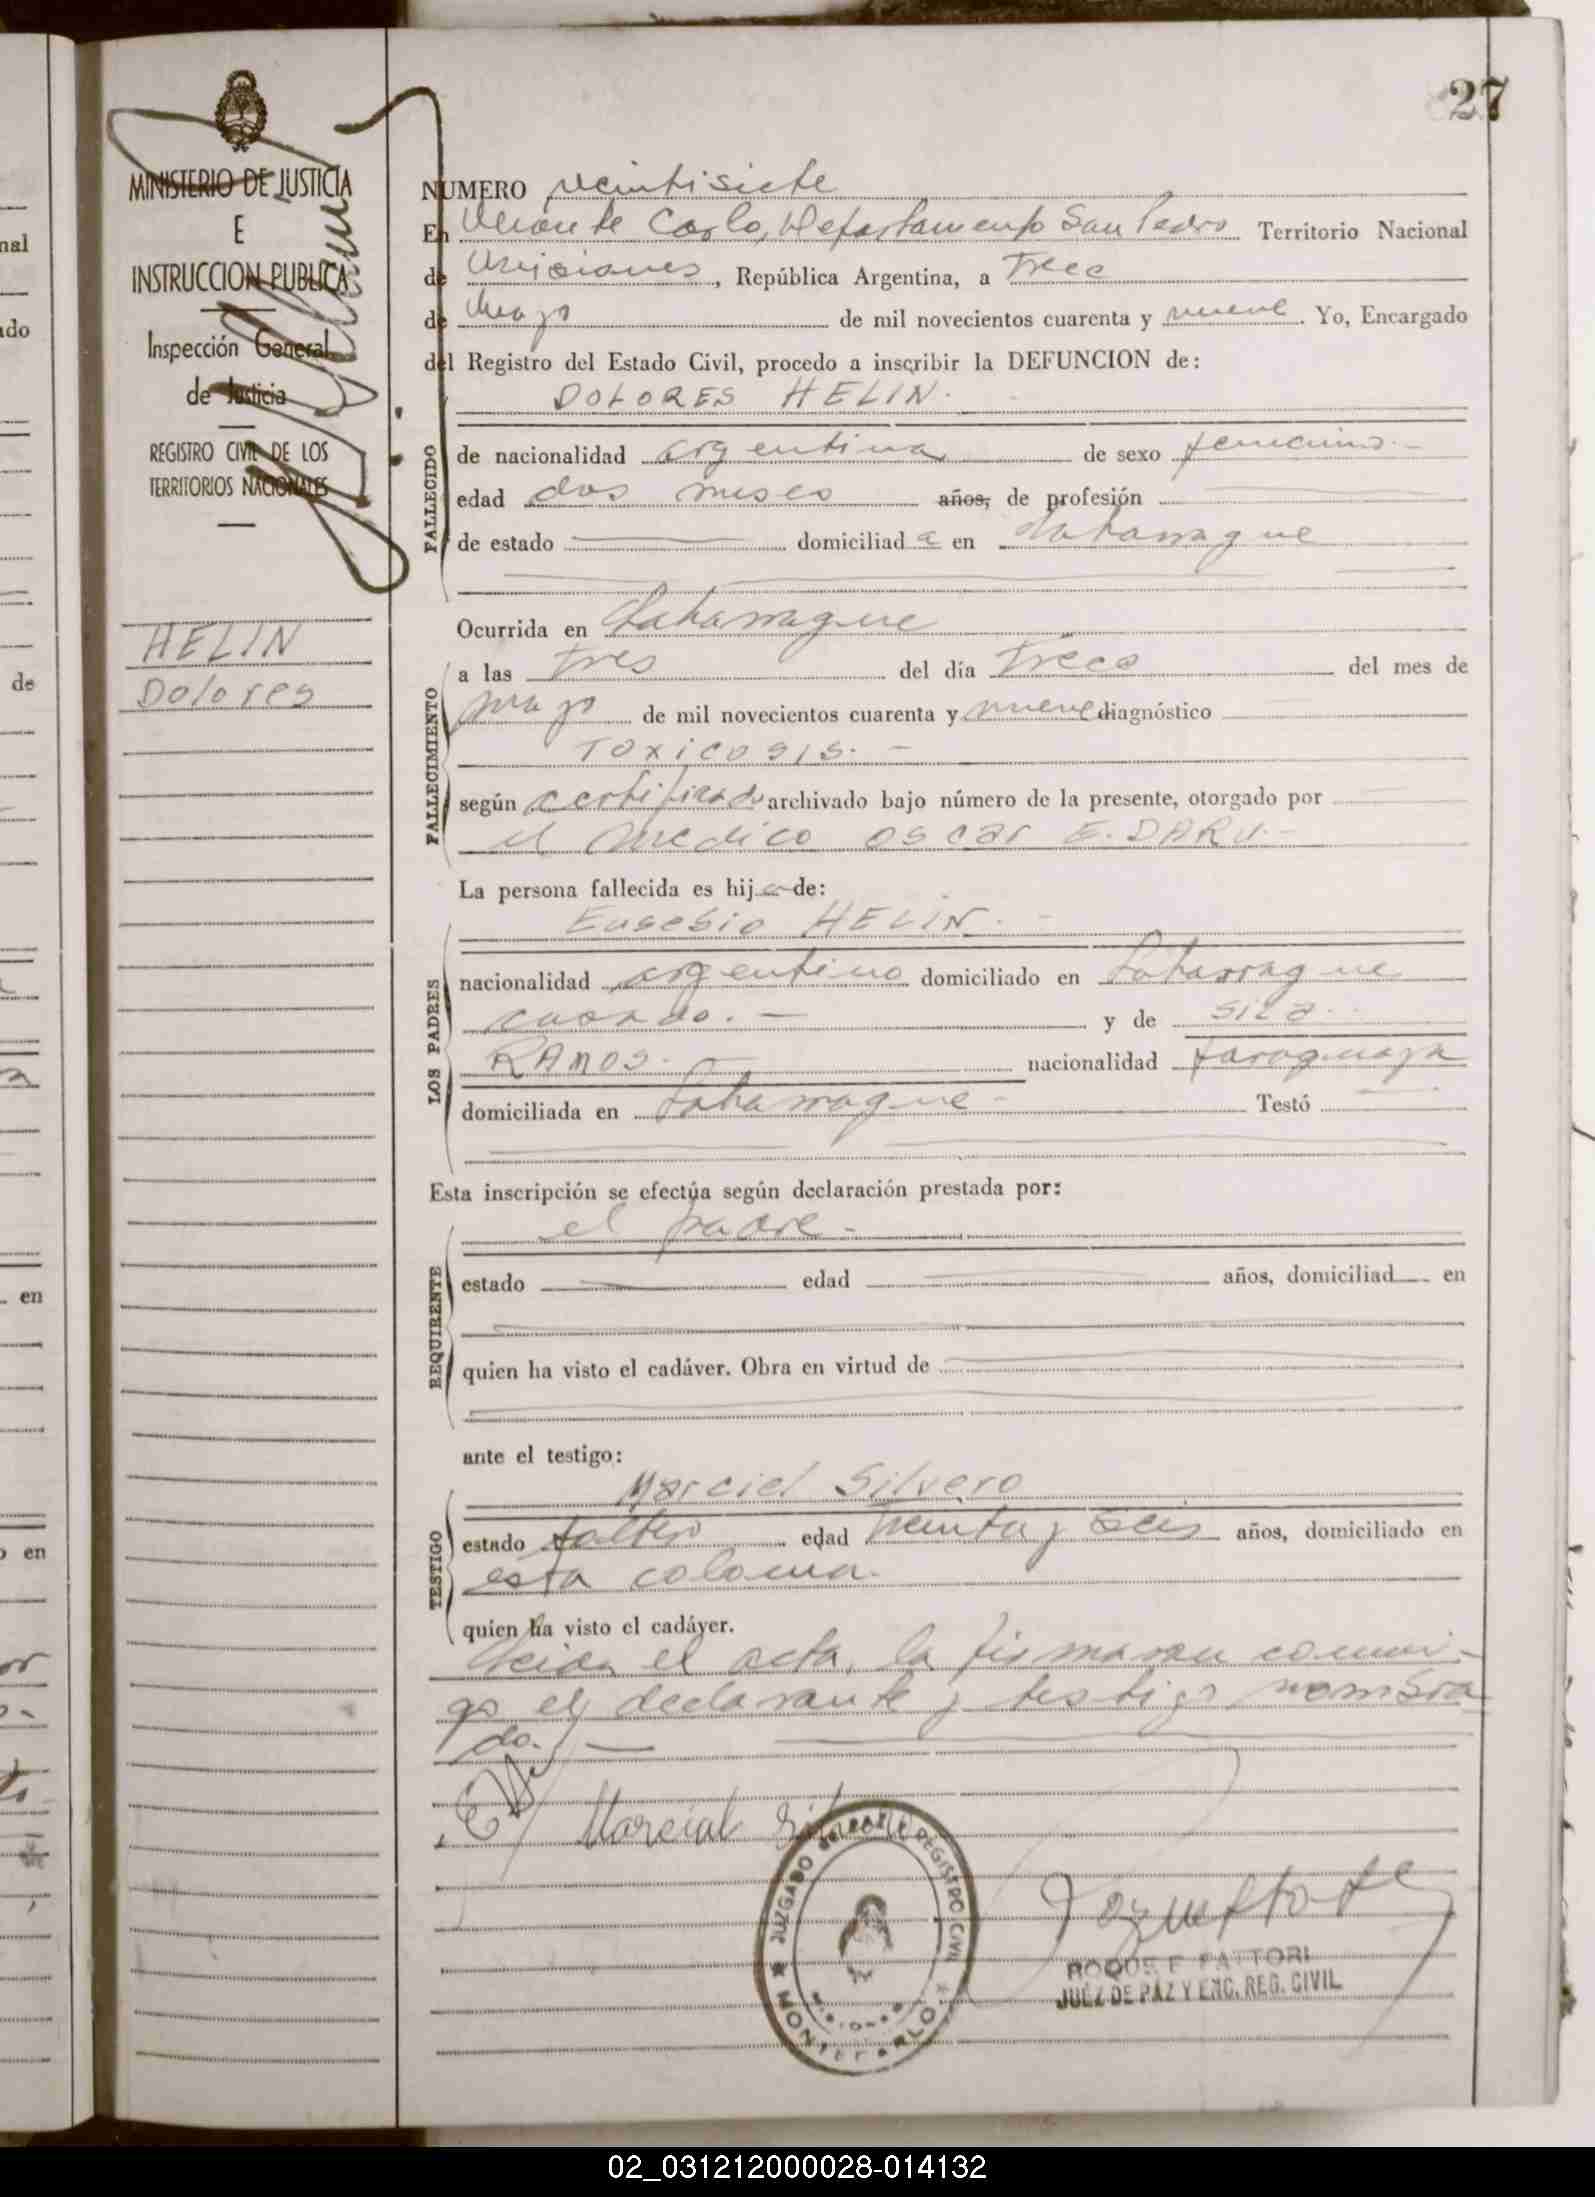 27
MINISTERIO DE JUSTICIA
E
INSTRUCCION PUBLICA
Inspección General
de Justicia
REGISTRO CIVIL DE LOS
TERRITORIOS NACIONALES
HELIN
Dolores
NUMERO veintisiete
En Monte Carlo, Departamento San Pedro Territorio Nacional
de Misiones, República Argentina, a trece
de mayo de mil novecientos cuarenta y nueve. Yo, Encargado
del Registro del Estado Civil, procedo a inscribir la DEFUNCION de:
DOLORES HELIN.
FALLECIDO
de nacionalidad argentina de sexo femenino.-
edad dos meses años, de profesión
de estado domiciliada en Laharrague
Ocurrida en Laharrague
FALLECIMIENTO
a las tres del día trece del mes de
mayo de mil novecientos cuarenta y nueve diagnóstico
TOXICOSIS.-
según certificado archivado bajo número de la presente, otorgado por
el medico oscar E. DARU.-
La persona fallecida es hija de:
LOS PADRES
Eusebio HELIN.-
nacionalidad argentino domiciliado en Laharrague
casado.- y de
RAMOS. nacionalidad paraguaya
domiciliada en Laharrague- Testó
Esta inscripción se efectúa según declaración prestada por:
REQUIRENTE
el padre-
estado edad años, domiciliad en
quien ha visto el cadáver. Obra en virtud de
ante el testigo:
TESTIGO
Marcial Silvero
estado soltero edad treinta y seis años, domiciliado en
esta colonia.
quien ha visto el cadáver.
el acta, la firmaron conmi-
go el declarante y testigo nombra
do.-
Marcial
JUZGADO DE PAZ REGISTRO CIVIL
MONTE CARLO
ROQUE F. FATTORI
JUEZ DE PAZ Y ENC. REG. CIVIL
02_031212000028-014132